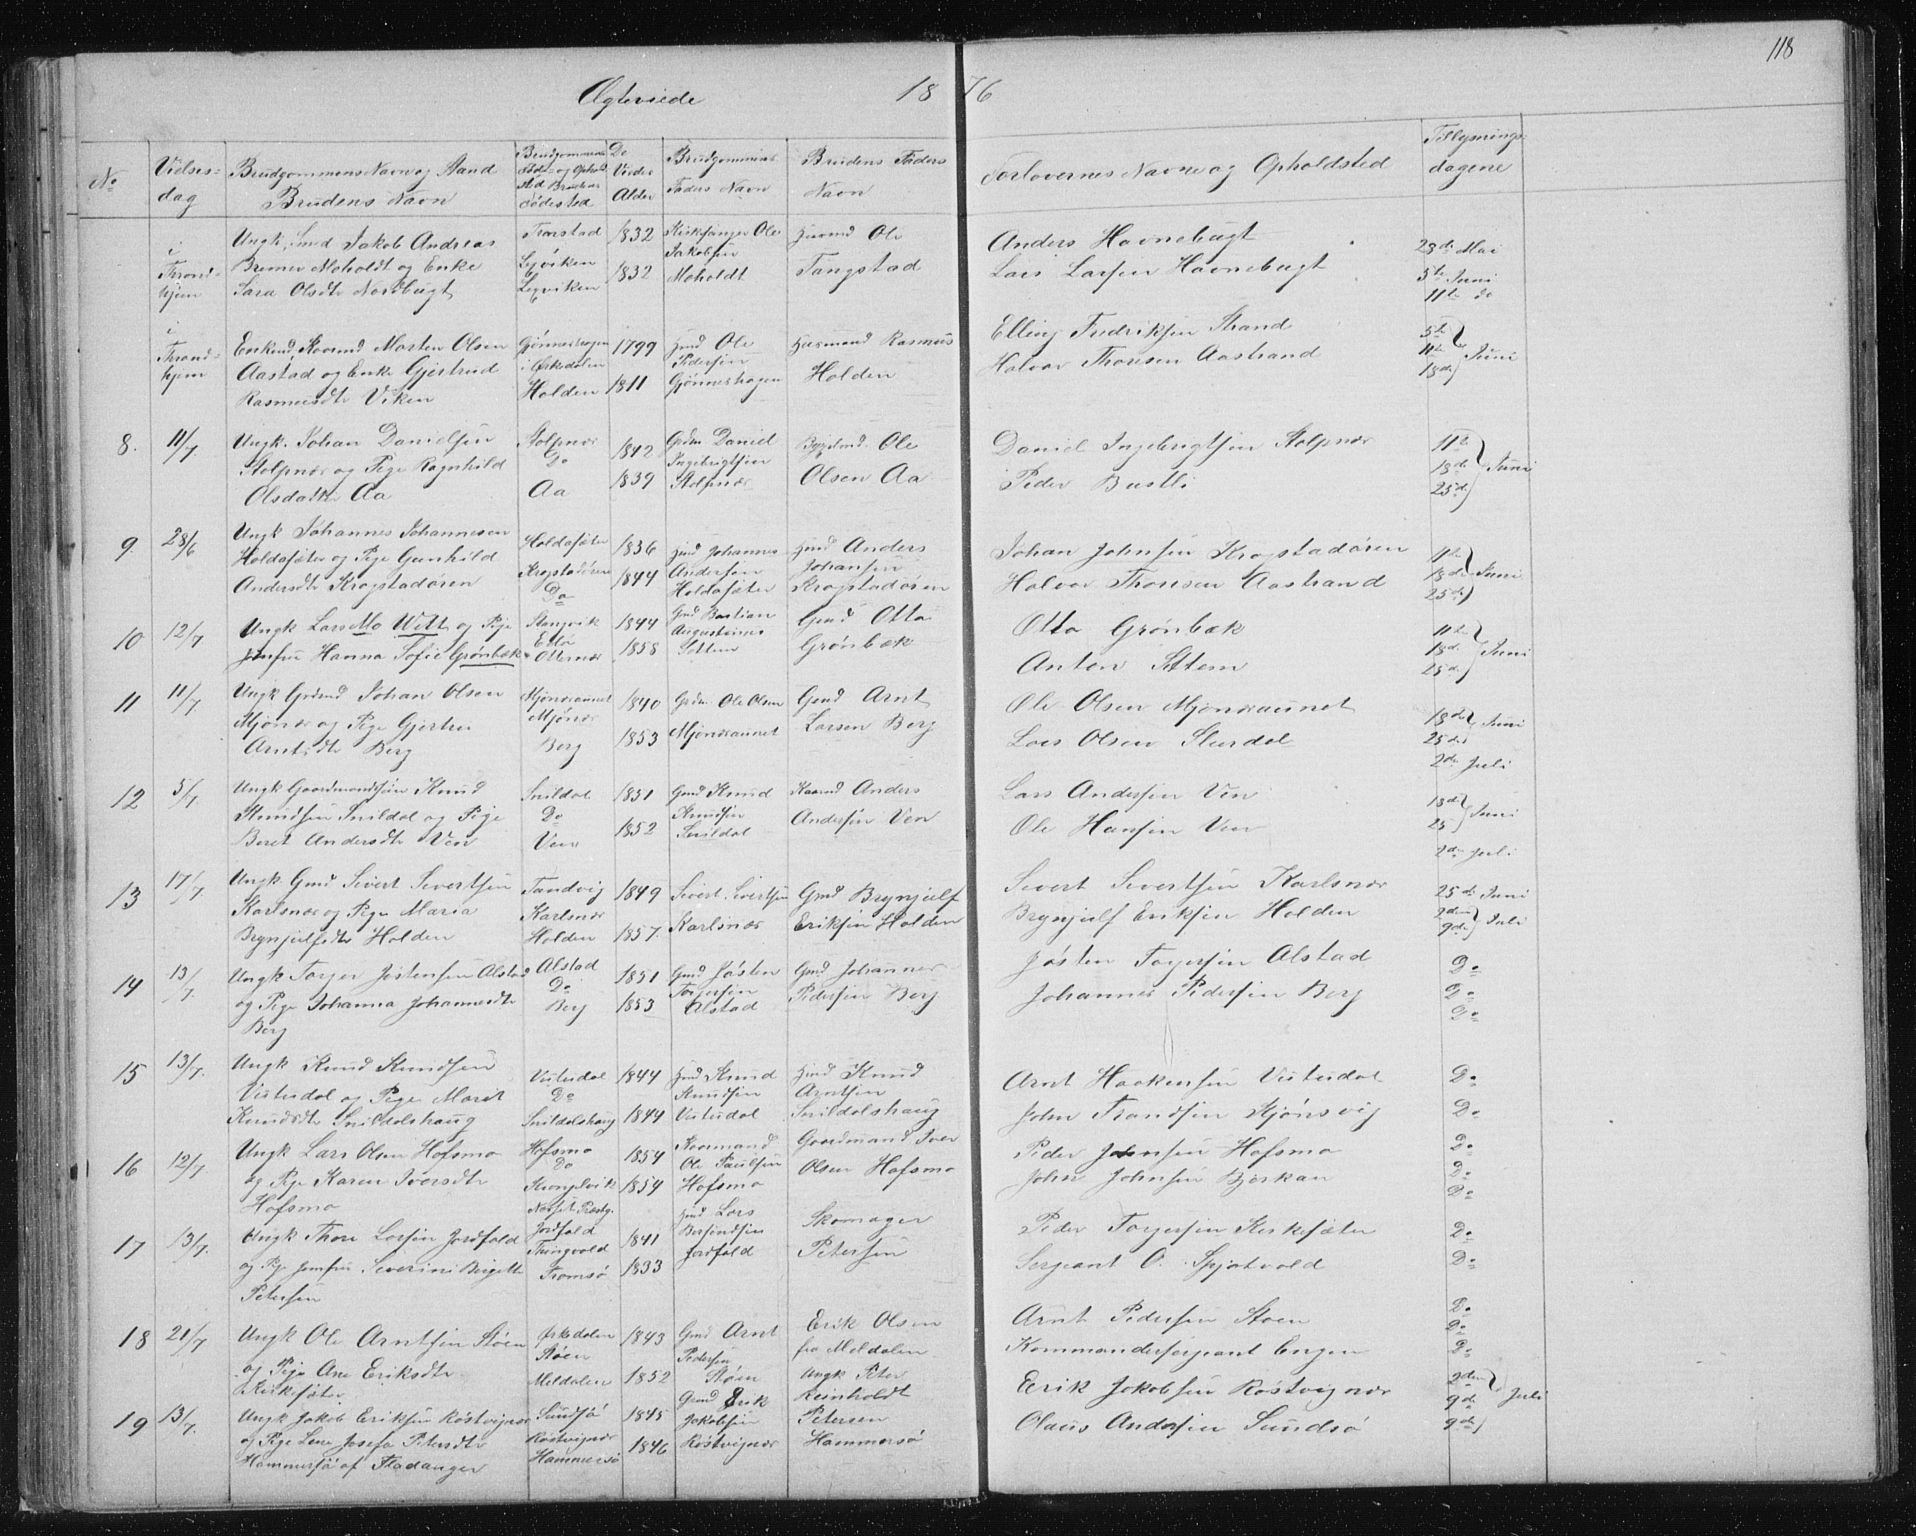 118
Ægteviede 1876
No
Vielses-
dag
Brudgommens Navn og Stand
Brudens Navn
De
Viedes
Alder
Brudgommens
Faders Navn
Brudens Faders
Navn
Forlovernes Navne og Opholdsted
Tillysnings-
dagene
i
Thrond-
hjem
Ungk. Smed Jakob Andreas
Bremer Moholdt og Enke
Sara Olsdtr Nordbugt
Leqviken
1832
1832
Kirksanger Ole
Jakobsen
Moholdt
Ole
Tangstad
Anders Havnebugt
Lars Larsen Havnebugt
28de Mai
5te Juni
11te do
i
Thrond-
hjem
Enkemd. Morten Olsen
Aastad og Enke Gjertrud
Rasmusdtr Viken
Gjønneshagen
i Ørkedalen
Holden
1799
1811
Ole
Pedersen
Gjønneshagen
Husmand Rasmus
Holden
Elling Fredriksen Strand
Halvor Thoresen Aastrand
5te
11te
18de
Juni
8.
11/7
Ungk. Johan Danielsen
Stolpnæs og Pige Ragnhild
Olsdatter Aa
Stolpnæs
Do
Aa
1842
1839
Grdm. Daniel
Ingebrigtsen
Stolpnæs
Ole
Olsen Aa
Daniel Ingebrigtsen Stolpnæs
Peder Bustli
11te
18de
25de
Juni
9.
28/6
Ungk Johannes Johannesen
Holdasæter og Pige Gunhild
Andersdtr Krogstadøren
Holdasæter
Krogstadøren
Do
1836
1844
Hmd Johannes
Andersen
Holdasæter
Hmd Anders
Johansen
Krogstadøren
Johan Johnsen Krogstadøren
Halvor Thoresen Aastrand
11te
18de
25de
Juni
10
12/7
Ungk Lars Mo Witt og Pige
Jomfru Hanna Sofie Grønbæk
Stangvik
Otternæs
1844
1858
Gmd Bastian
Augustinus
Gmd Otto
Grønbæk
Otto Grønbæk
Anton Settem
11te
18de
25de
Juni
11
11/7
Ungk Grdmd Johan Olsen
Mjønæs og Pige Gjertru
Arntsdtr Berg
Mjønesaunet
Mjønæs
Berg
1840
1853
Grdm. Ole Olsen
Mjønesaunet
Gmd Arnt
Larsen Berg
Ole Olsen Mjønesaunet
Lars Olsen Slørdal
18de
25de
Juni
2den Juli
12
5/7
Ungk Gaardmandssøn Knud
Knudsen Snildal og Pige
Beret Andersdtr Ven
Snildal
Do
Ven
1851
1852
Gmd Knud
Knudsen
Snildal
Kaarmd Anders
Andersen Ven
Lars Andersen Ven
Ole Hansen Ven
18de
25
Juni
2den Juli
13
17/7.
Ungk. Gmd Sivert Sivertsen
Karlsnæs og Pige Maria
Brynjulfsdtr Holden
Tandvig
Karlsnæs
Holden
1849
1857.
Sivert Sivertsen
Karlsnæs
Gmd Brynjulf
Eriksen Holden
Sivert Sivertsen Karlsnæs
Brynjulf Eriksen Holden
25de Juni
2den
9de
Juli
14
13/7.
Ungk Torger Jøstensen Alstad
og Pige Johanna Johannesdtr
Berg
Alstad
Do
Berg
1851
1853
Gmd Jøsten
Torgersen
Alstad
Gmd Johannes
Pedersen Berg
Jøsten Torgersen Alstad
Johannes Pedersen Berg
Do
Do
Do
15
13/7.
Ungk Knud Knudsen
Vuttudal og Pige Marit
Knudsdtr Snildalshaug
Vuttudal
Do
Snildalshaug
1844
1844
Hmd Knud
Knudsen
Vuttudal
Hmd Knud
Arntsen
Snildalshaug
Arnt Haakensen Vuttudal
John Trondsen Kjønsvig
Do
Do
Do
16
12/7
Ungk Lars Olsen Hofsmo
og Pige Karen Iversdtr
Hofsmo
Hofsmo
Do
1854
1854
Kaarmand
Ole Paulsen
Hofsmo
Gaardmand Iver
Olsen Hofsmo
Peder Johnsen Hofsmo
John Johnsen Bjerkan
Do
Do
17
13/7.
Ungk Thore Larsen Jordfald
og Pige Jomfru Severine Birgitte
Petersen
Jordfald
Thingvold
Tromsø
1841
1833
Hmd Lars
Jordfald
Skomager
Petersen
Peder Torgersen Kirksæter
Sergeant O. Spjotvold
Do
Do
Do
18
21/7
Ungk Ole Arntsen Støen
og Pige Ane Eriksdtr
Kirksæter
Ørkedalen
Støen
Meldalen
1843
1852
Gmd Arnt
Pedersen
Støen
Erik Olsen
fra Meldalen
Arnt Pedersen Støen
Kommandersergeant Engen
Do
Do
19
13/7.
Ungk Jakob Eriksen Røstvignæs
og Pige Lene Josefa Petersdtr
Hammersø af Fladanger
Sundsø
Røstvignæs
Hammersø
1845
1846
Gmd Erik
Jakobsen
Røstvignæs
Ungk Peter
Reinholdt
Petersen
Hammersø
Erik Jakobsen Røstvignæs
Olaus Andersen Sundsø
2den
9de
9de
Juli